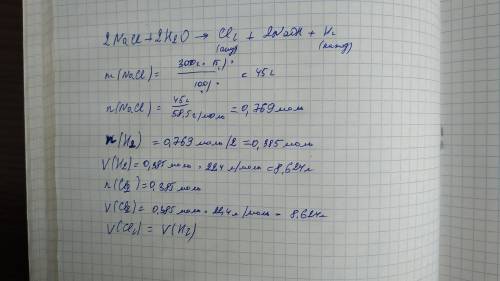 2NaCl + 2H2O → Cl2 + 2NaOH + H2
(анод) (катод)
m(NaCl) = 300г · 15% / 100% = 45г
n(NaCl) = 45г / 58,5г/моль = 0,769 моль
n(H2) = 0,769 моль/2 = 0,385 моль
V(H2) = 0,385 моль · 22,4 л/моль = 8,624л
n(Cl2) = 0,385 моль
V(Cl2) = 0,385 моль · 22,4 л/моль = 8,624л
V(Cl2) = V(H2)